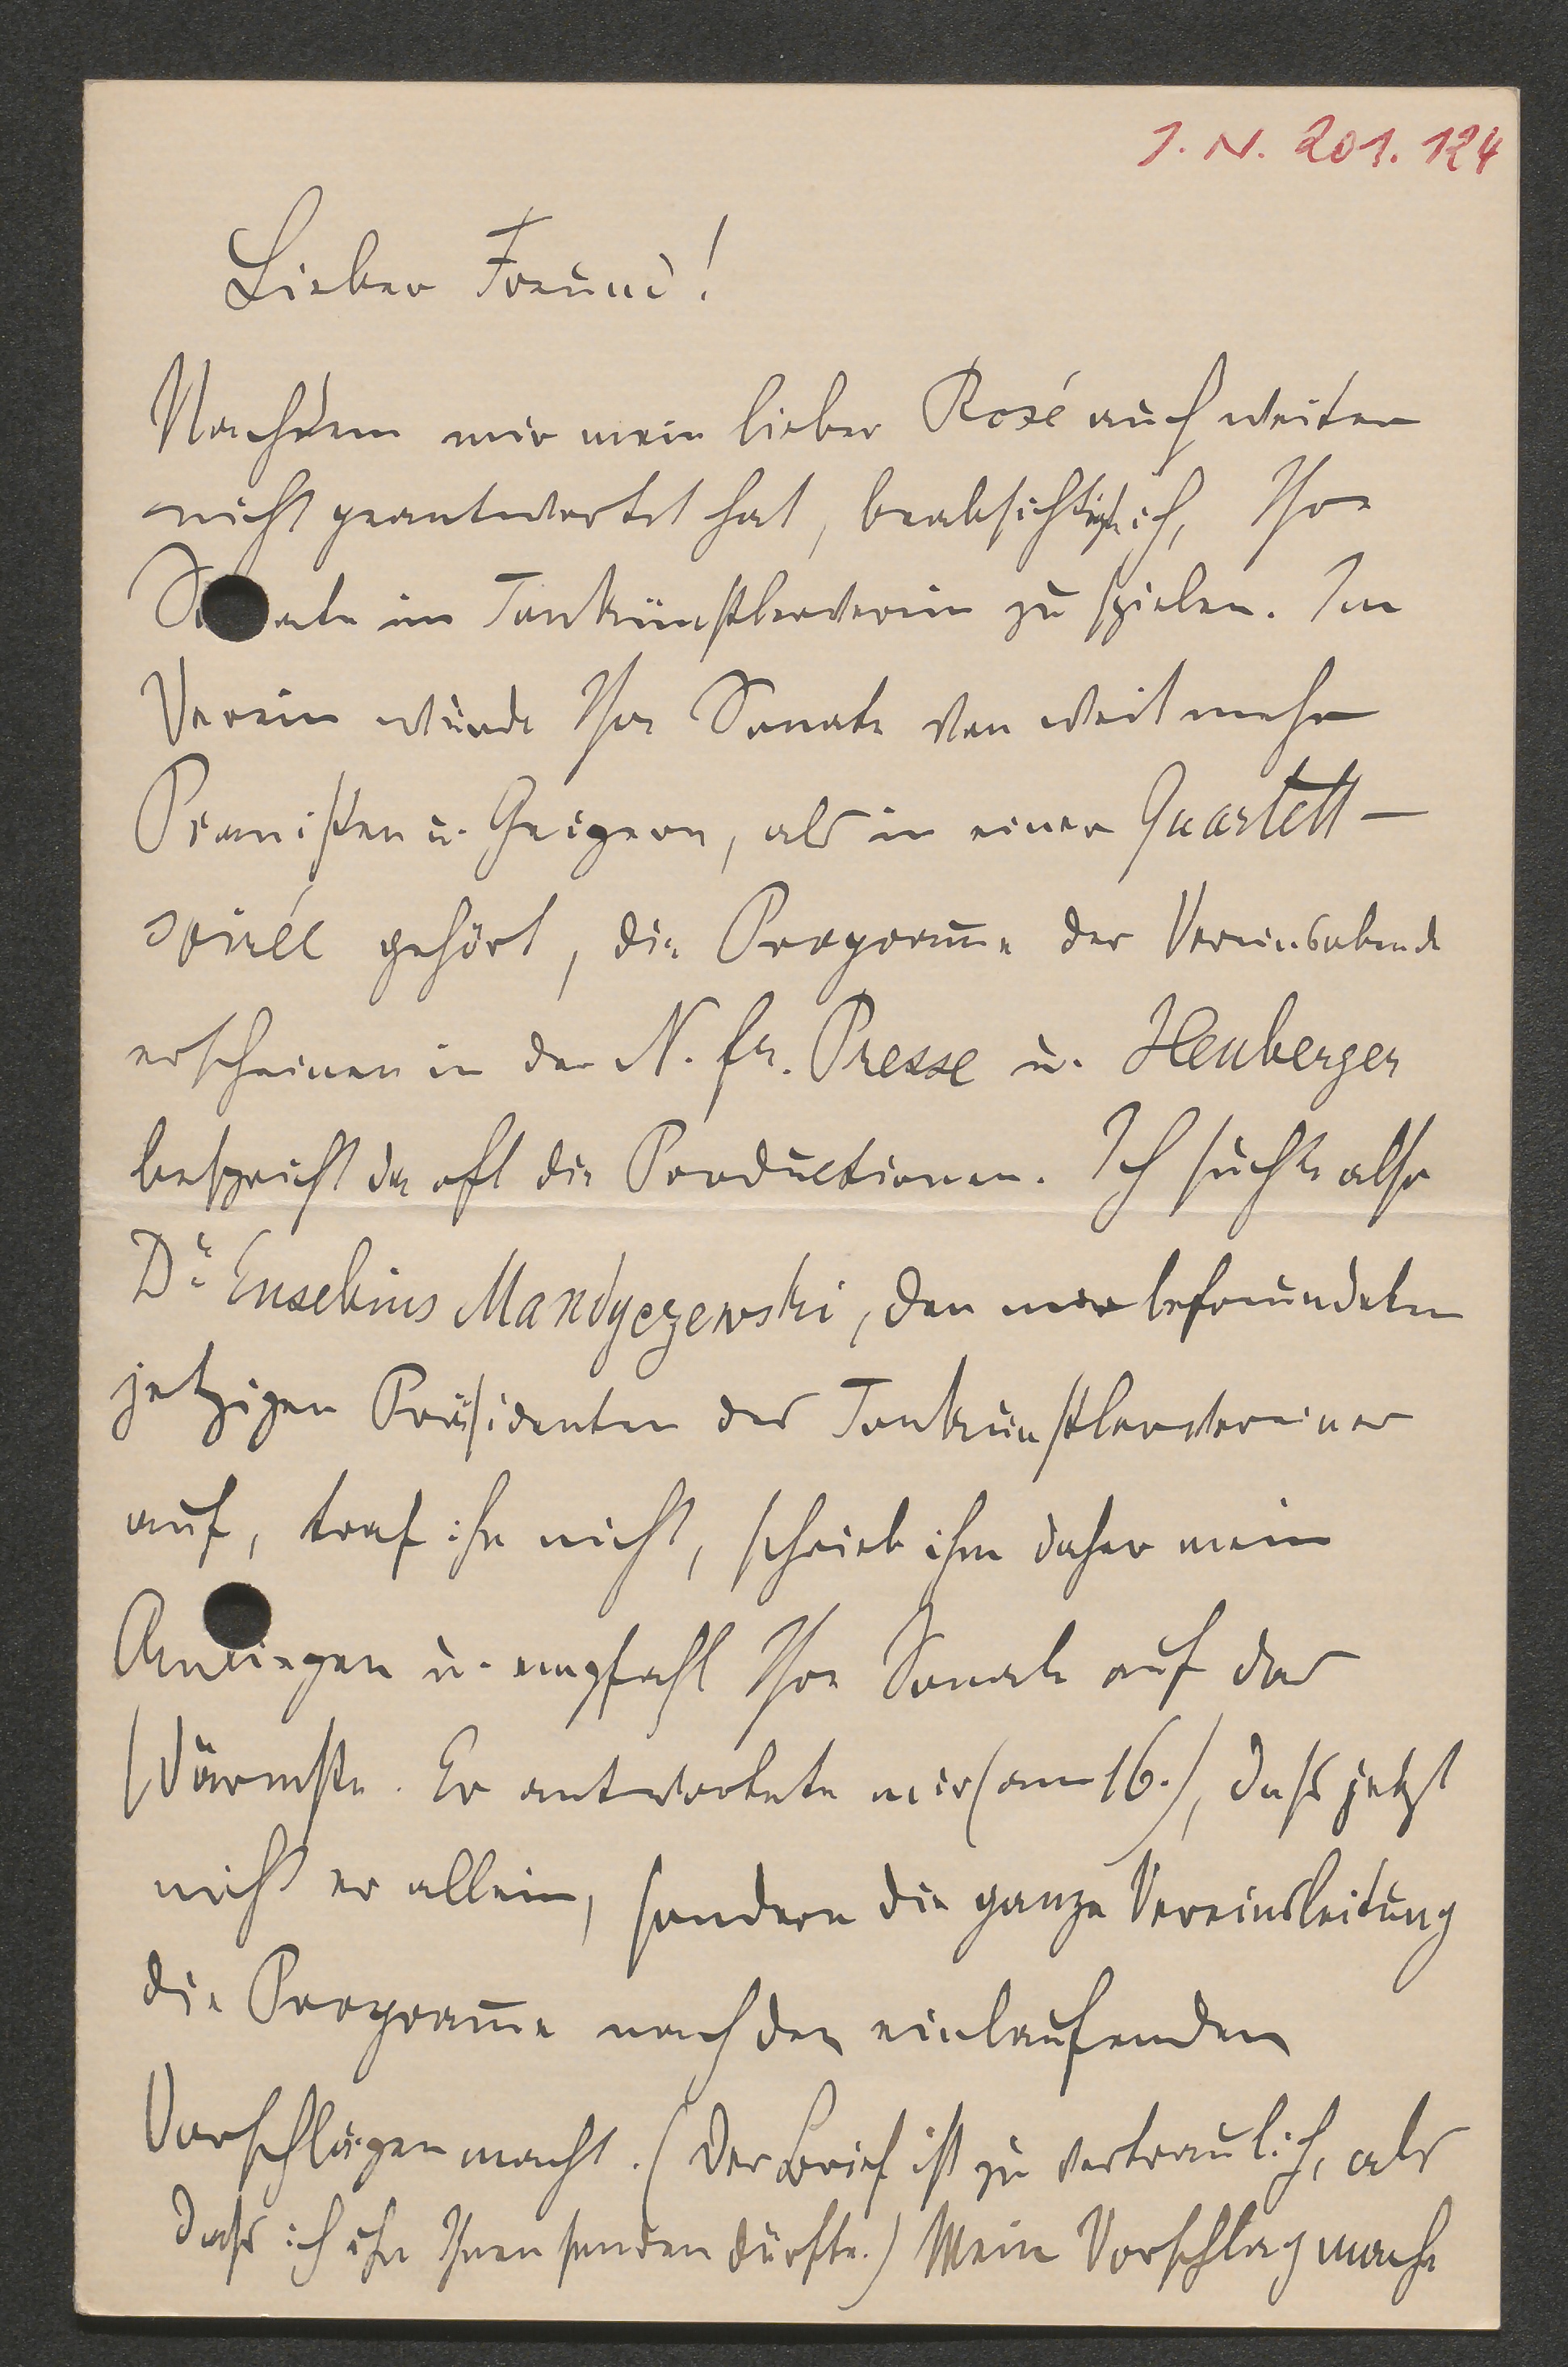 I. N. 201.124
Lieber Freund!
Nachdem mir mein lieber Rosé auch weiter
nicht geantwortet hat, beabsichtigte ich, Ihre
Sonate im Tonkünstlerverein zu spielen. Im
Verein würde Ihre Sonate von weit mehr
Pianisten u. Geigern, als in einer Quartett-
soirée gehört, die Programe der Vereinsabende
erscheinen in der N. fr. Presse u. Heuberger
bespricht da oft die Productionen. Ich suchte also
Dr Eusebius Mandyczewski, den mir befreundeten
jetzigen Präsidenten des Tonkünstlervereines
auf, traf ihn nicht, schrieb ihm daher mein
Anliegen u. empfahl Ihre Sonate auf das
Wärmste. Er antwortete mir (am 16.), daß jetzt
nicht er allein, sondern die ganze Vereinsleitung
die Programe nach den einlaufenden
Vorschlägen macht. (Der Brief ist zu vertraulich, als
daß ich ihn Ihnen senden dürfte.) Mein Vorschlag mache